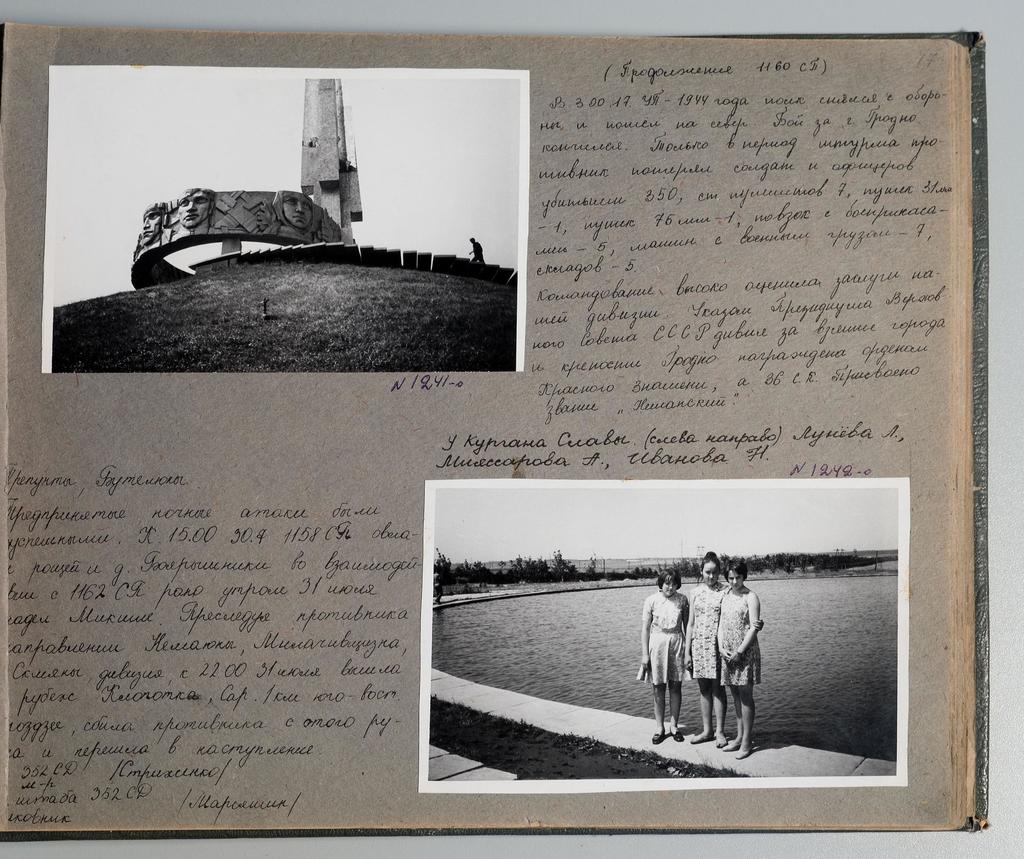 17
(Продолжение 1160 СП)
В 3.00 17. VII - 1944 года полк снялся с оборо-
ны и пошел на север. Бой за г. Гродно
кончился. Только в период штурма про-
тивник потерял солдат и офицеров
убитыми 350, ст. пулеметов 7, пушек 31мм
- 1, пушек 75 мм - 1, повзок с боеприпаса-
ми - 5, машин с военным грузом - 7,
складов - 5.
Командование высоко оценила заслуги на-
шей дивизии. Указом Президиума Верхов-
ного Совета СССР дивизия за взятие города
и крепости Гродно награждена орденом
Красного Знамени, а 36 С.П. Присвоено
звание „Неманский".
N 1241-о
У Кургана Славы. (слева направо) Лунёва Л.,
Мияссарова А., Иванова Н.
N 1242-о
Крепунты, Бутелюны.
Предпринятые ночные атаки были
успешными. К 15.00 30.7 1158 СП овла-
рощей и д. Боярышники во взаимодей-
вии с 1162 СП рано утром 31 июля
адел Микише. Преследуя противника
аправлении Немаюны, Милачивщизна,
Скмяны, дивизия к 22.00 31 июля вышла
рубеж Клопотка, Сар. 1 км юго-вост.
гоздзе, сбила противника с этого ру-
а и перешла в наступление.
352 СД /Стриженко/
м-р
штаба 352 СД /Марсяшин/
лковник